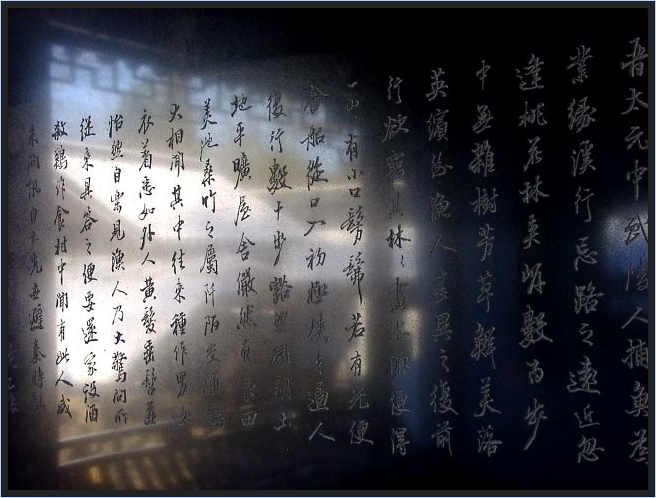 晉太元中武陵人捕魚爲
業緣溪行忘路之遠近忽
逢桃花林夾岸數百步
中無雜樹芳草鮮美落
英繽紛漁人甚異之復前
行欲窮其林〻盡水源便得
一山〻有小口髣髴若有光便
舍船從口入初極狹才通人
復行數十步豁然開朗土
地平曠屋舍儼然有良田
美池桑竹之屬阡陌交通雞
犬相聞其中往來種作男女
衣着悉如外人黃髮垂髫並
怡然自樂見漁人乃大驚問所
從來具答之便要還家設酒
殺鷄作食村中聞有此人咸
來問訊自云先世避秦時亂